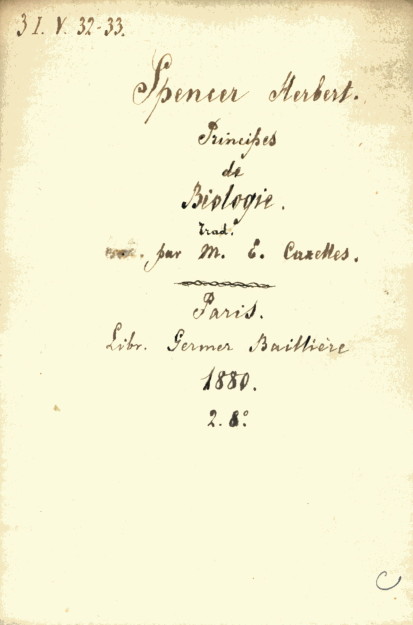 3 I. V. 32-33.
Spencer Herbert.
Principes
de
Biologie.
Trad.
par M. E. Cazelles.
Paris.
Libr. Germer Baillière
1880.
2. 8º.
C